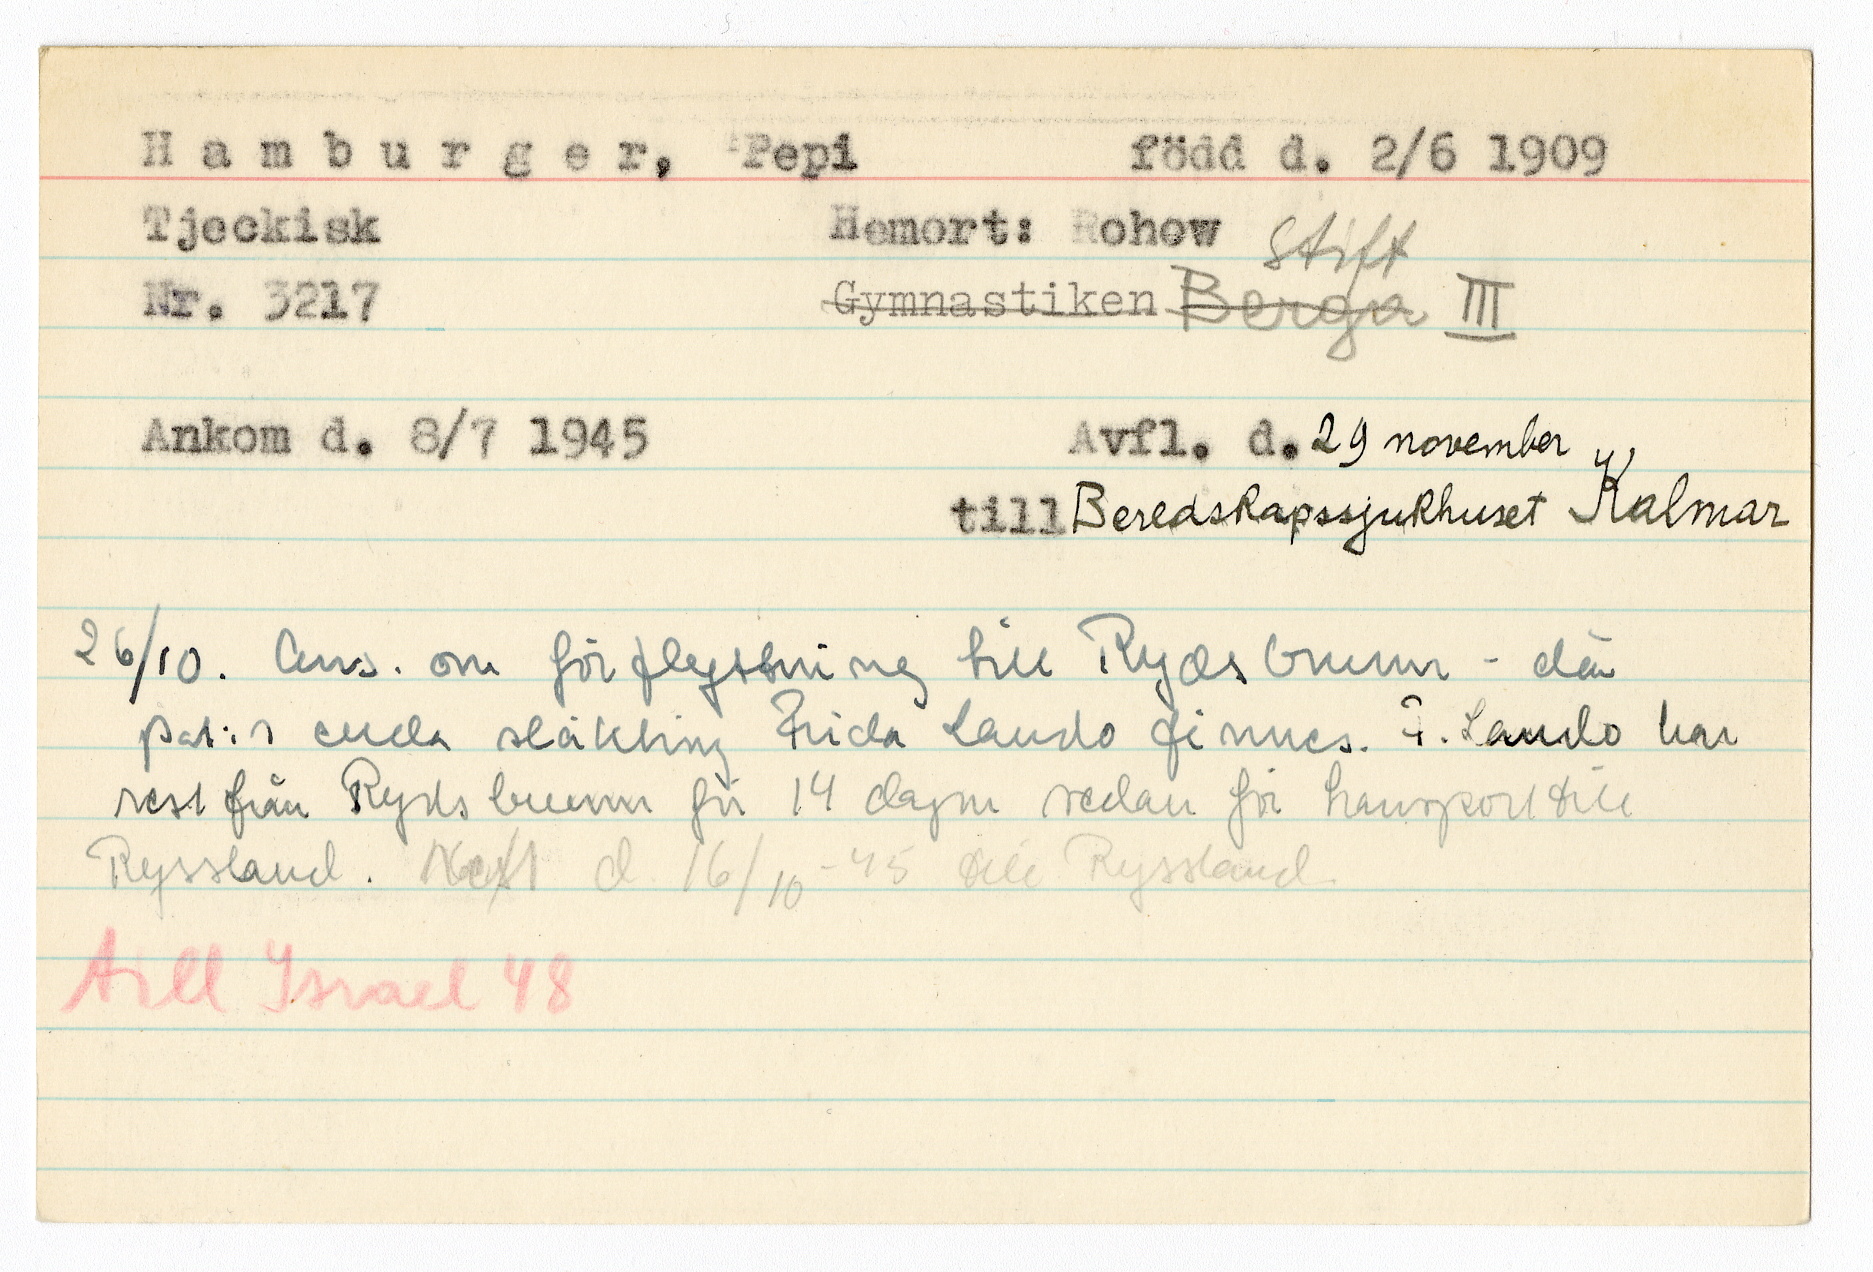 Hamburger, Pepi född d. 2/6 1909
Tjeckisk Hemort: Rohow
Stift
Nr. 3217 Gymnastiken Berga III
Ankom d. 8/7 1945 Avfl. d. 29 november
till Beredskapssjukhuset Kalmar
26/10. Ans. om förflyttning till Rydsbrunn - där
pat:s enda släkting Frida Lando finnes. F. Lando har
rest från Rydsbrunn för 14 dagar sedan för transport till
Ryssland. Rest d 16/10 -45 till Ryssland
till Israel 48